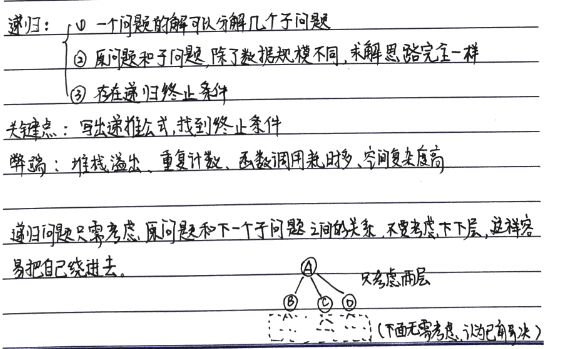 递归：① 一个问题的解可以分解几个子问题
② 原问题和子问题,除了数据规模不同,求解思路完全一样
③ 存在递归终止条件
关键点：写出递推公式,找到终止条件
弊端：堆栈溢出、重复计数、函数调用耗时多、空间复杂度高
递归问题只需考虑,原问题和下一个子问题之间的关系,不要考虑,下下层,这样容
易把自己绕进去。
A
只考虑两层
B C D
(下面无需考虑,认为已解决)